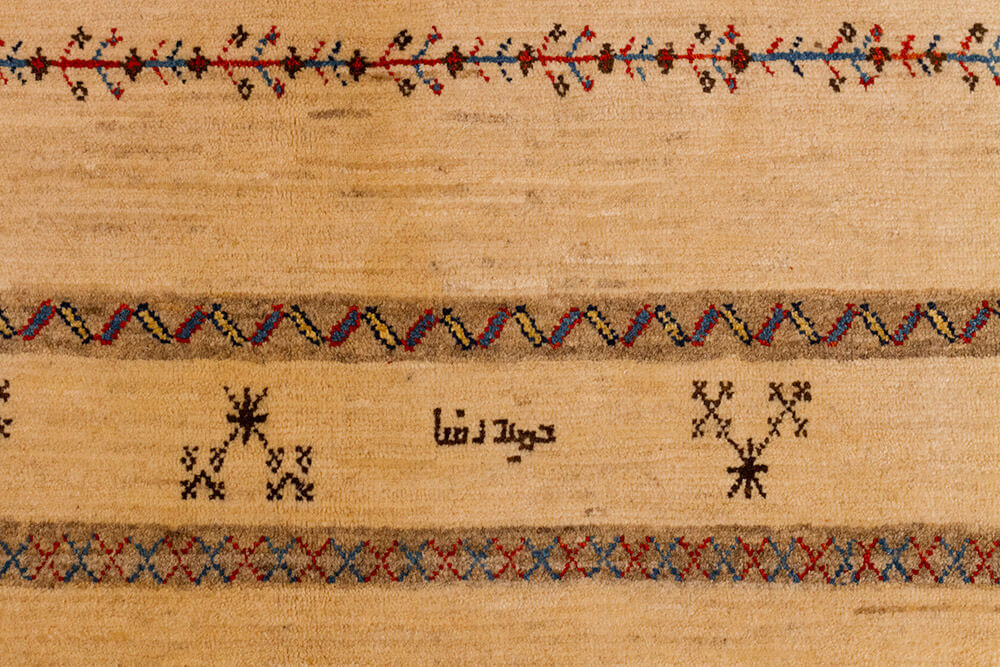 حمید رضا